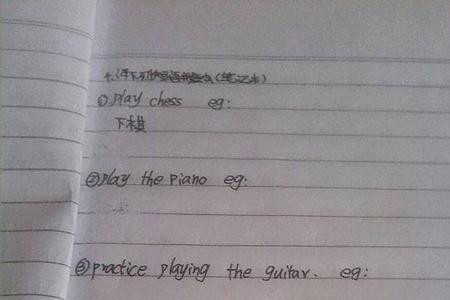 (笔记本)
① play chess eg:
下棋
② play the piano eg:
③ practice playing the guitar. eg: